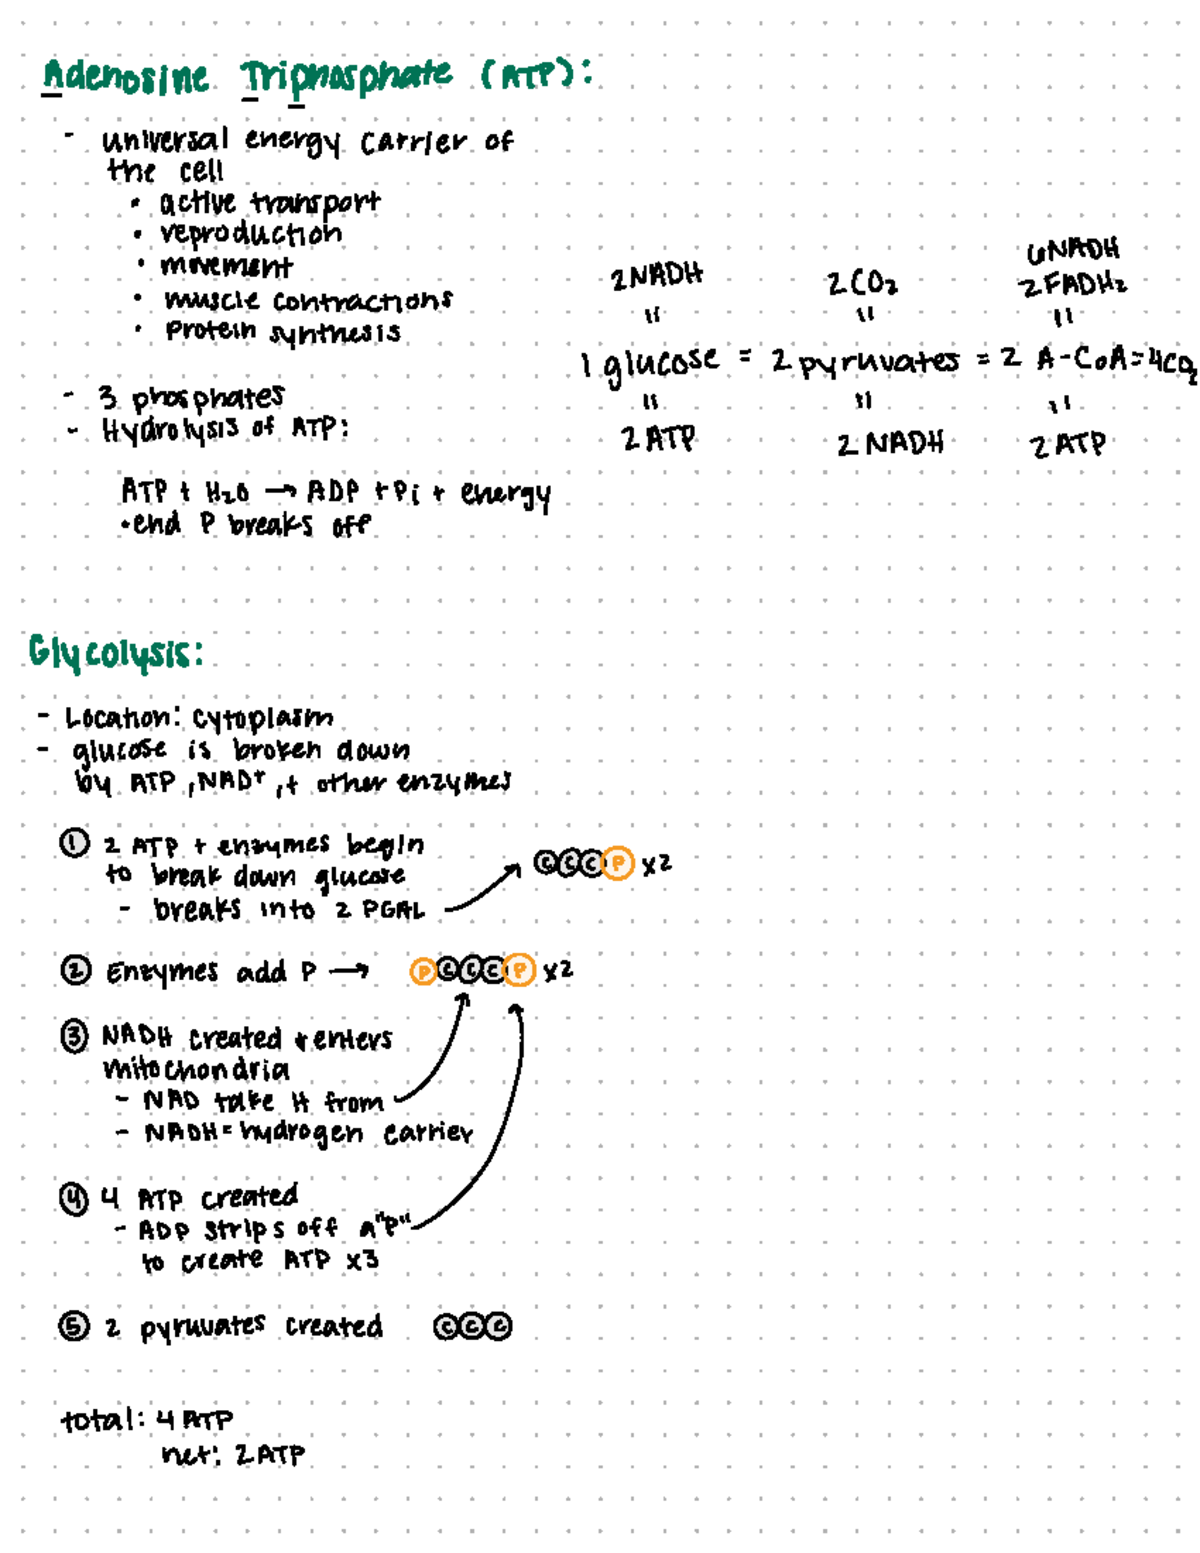 Adenosine Triphosphate (ATP):
- universal energy carrier of
the cell
• active transport
• reproduction
• movement
• muscle contractions
• protein synthesis
- 3 phosphates
- Hydrolysis of ATP:
ATP + H₂O → ADP + Pi + energy
•end P breaks off
6NADH
2NADH 2CO₂ 2FADH₂
" " "
1 glucose = 2 pyruvates = 2 A-CoA=4CO₂
" " "
2ATP 2NADH 2ATP
Glycolysis:
- Location: cytoplasm
- glucose is broken down
by ATP, NAD⁺, + other enzymes
① 2 ATP + enzymes begin
to break down glucose
- breaks into 2 PGAL → CCCP x2
② Enzymes add P → PCCCP x2
③ NADH created + enters
mitochondria
- NAD take H from
- NADH = hydrogen carrier
④ 4 ATP created
- ADP strips off a "P"
to create ATP x3
⑤ 2 pyruvates created CCC
total: 4 ATP
net: 2 ATP